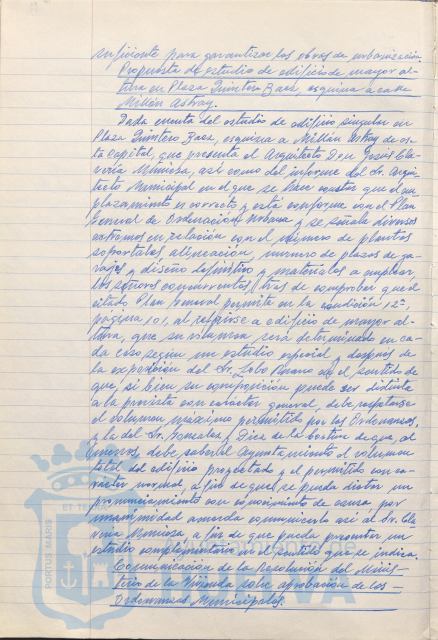 suficiente para garantizar las obras de urbanización.
Propuesta de estudio de edificio de mayor al-
tura en Plaza Quintero Baez, esquina a calle
Millán Astray.
Dada cuenta del estudio de edificio singular en
Plaza Quintero Baez, esquina a Millán Astray de es-
ta capital, que presenta el Arquitecto Don Jesús Cla-
vería Muniosa, así como del informe del Sr. Arqui-
tecto Municipal en el que se hace constar que el em-
plazamiento es correcto y está conforme con el Plan
General de Ordenación Urbana y se señala diversos
extremos en relación con el número de plantas
soportales alineación, número de plazas de ga-
rajes y diseño definitivo y materiales a emplear,
los señores concurrentes, tras de comprobar que el
citado Plan General permite en la condición 12ª,
página 101, al referirse a edificio de mayor al-
tura, que su volumen será determinado en ca-
da caso según un estudio especial y después de
la exposición del Sr. Lobo en el sentido de
que, si bien su composición puede ser distinta
a la prevista con carácter general, debe respetarse
el volumen máximo permitido por las Ordenanzas,
y la del Sr. González y Díez de la Cortina de que, al
menos, debe saber el Ayuntamiento el volumen
total del edificio proyectado y el permitido con ca-
rácter normal, a fin de que se pueda dictar un
pronunciamiento con conocimiento de causa, por
unanimidad acuerda comunicarlo así al Sr. Cla-
vería Muniosa, a fin de que pueda presentar un
estudio complementario en el sentido que se indica.
Comunicación de la Resolución del Minis-
terio de la Vivienda sobre aprobación de las
Ordenanzas Municipales.
PORTUS MARIS
ET TERRAE